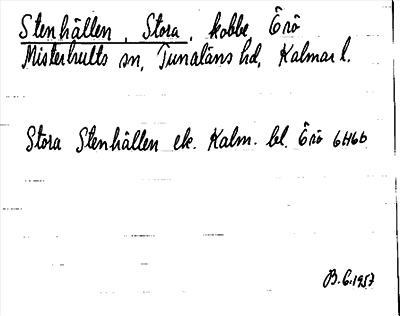 Stenhällen, Stora, kobbe Örö
Misterhults sn, Tunaläns hd, Kalmar l.
Stora Stenhällen ek. Kalm. bl. Örö 6H6b
B.G. 1957